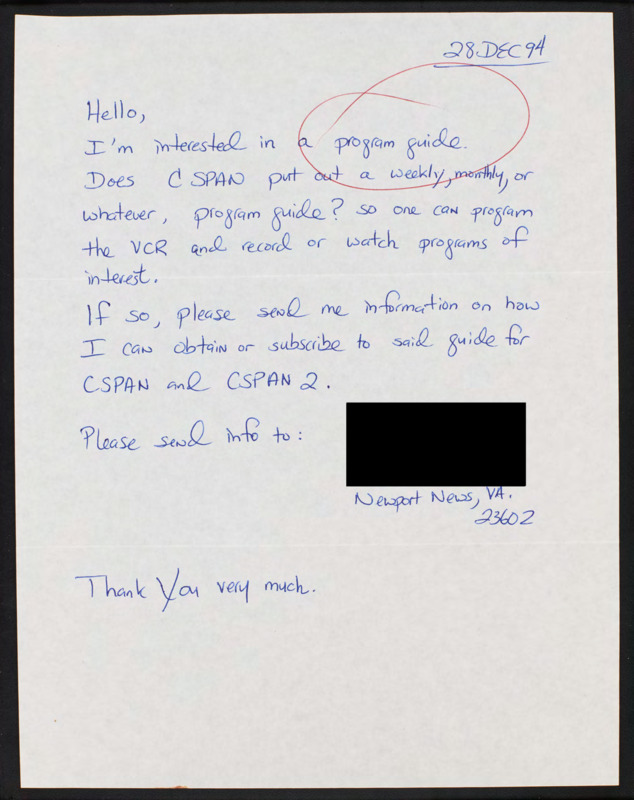 28 DEC 94
Hello,
I'm interested in a program guide.
Does C SPAN put out a weekly, monthly, or
whatever, program guide? so one can program
the VCR and record or watch programs of
interest.
If so, please send me information on how
I can obtain or subscribe to said guide for
CSPAN and CSPAN 2.
Please send info to:
Newport News, VA.
23602
Thank You very much.